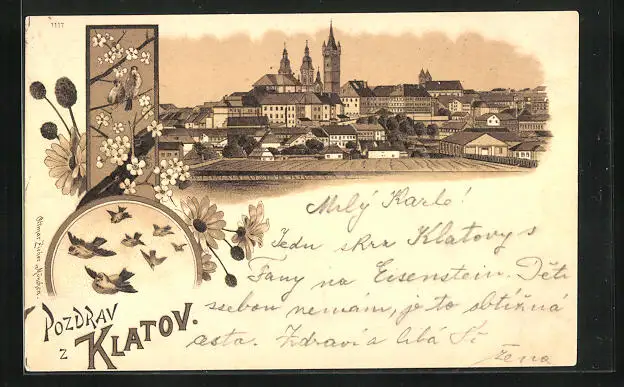 1117
Milý Karlo!
Jedu skrz Klatovy s
Fany na Eisenstein. Děti
ssebou nemám, je to obtížná
cesta. Zdraví a líbá Tě
žena
Ottmar Zieher, München.
POZDRAV
z KLATOV.